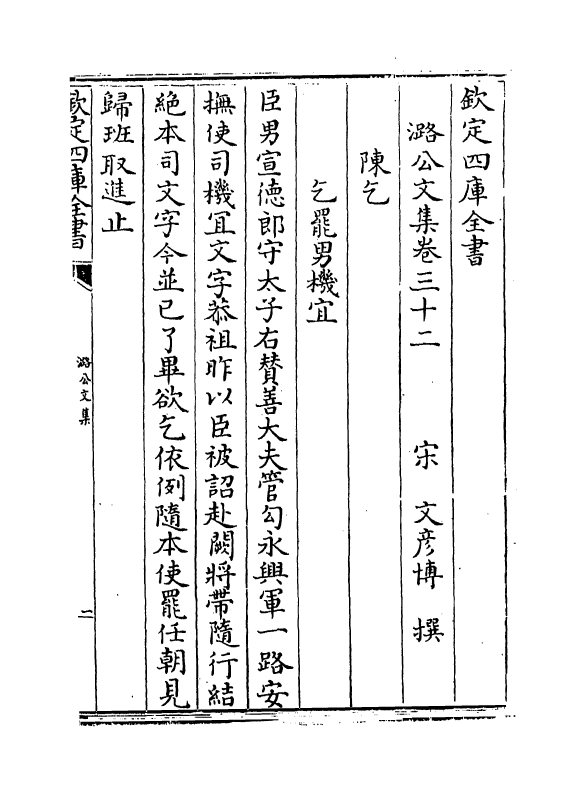 欽定四庫全書
潞公文集卷三十二　宋　文彦博　撰
陳乞
乞罷男機宜
臣男宣德郎守太子右賛善大夫管勾永興軍一路安
撫使司機宜文字恭祖昨以臣被詔赴闕將帶隨行結
絶本司文字今並已了畢欲乞依例隨本使罷任朝見
歸班取進止
欽定四庫全書
潞公文集
二